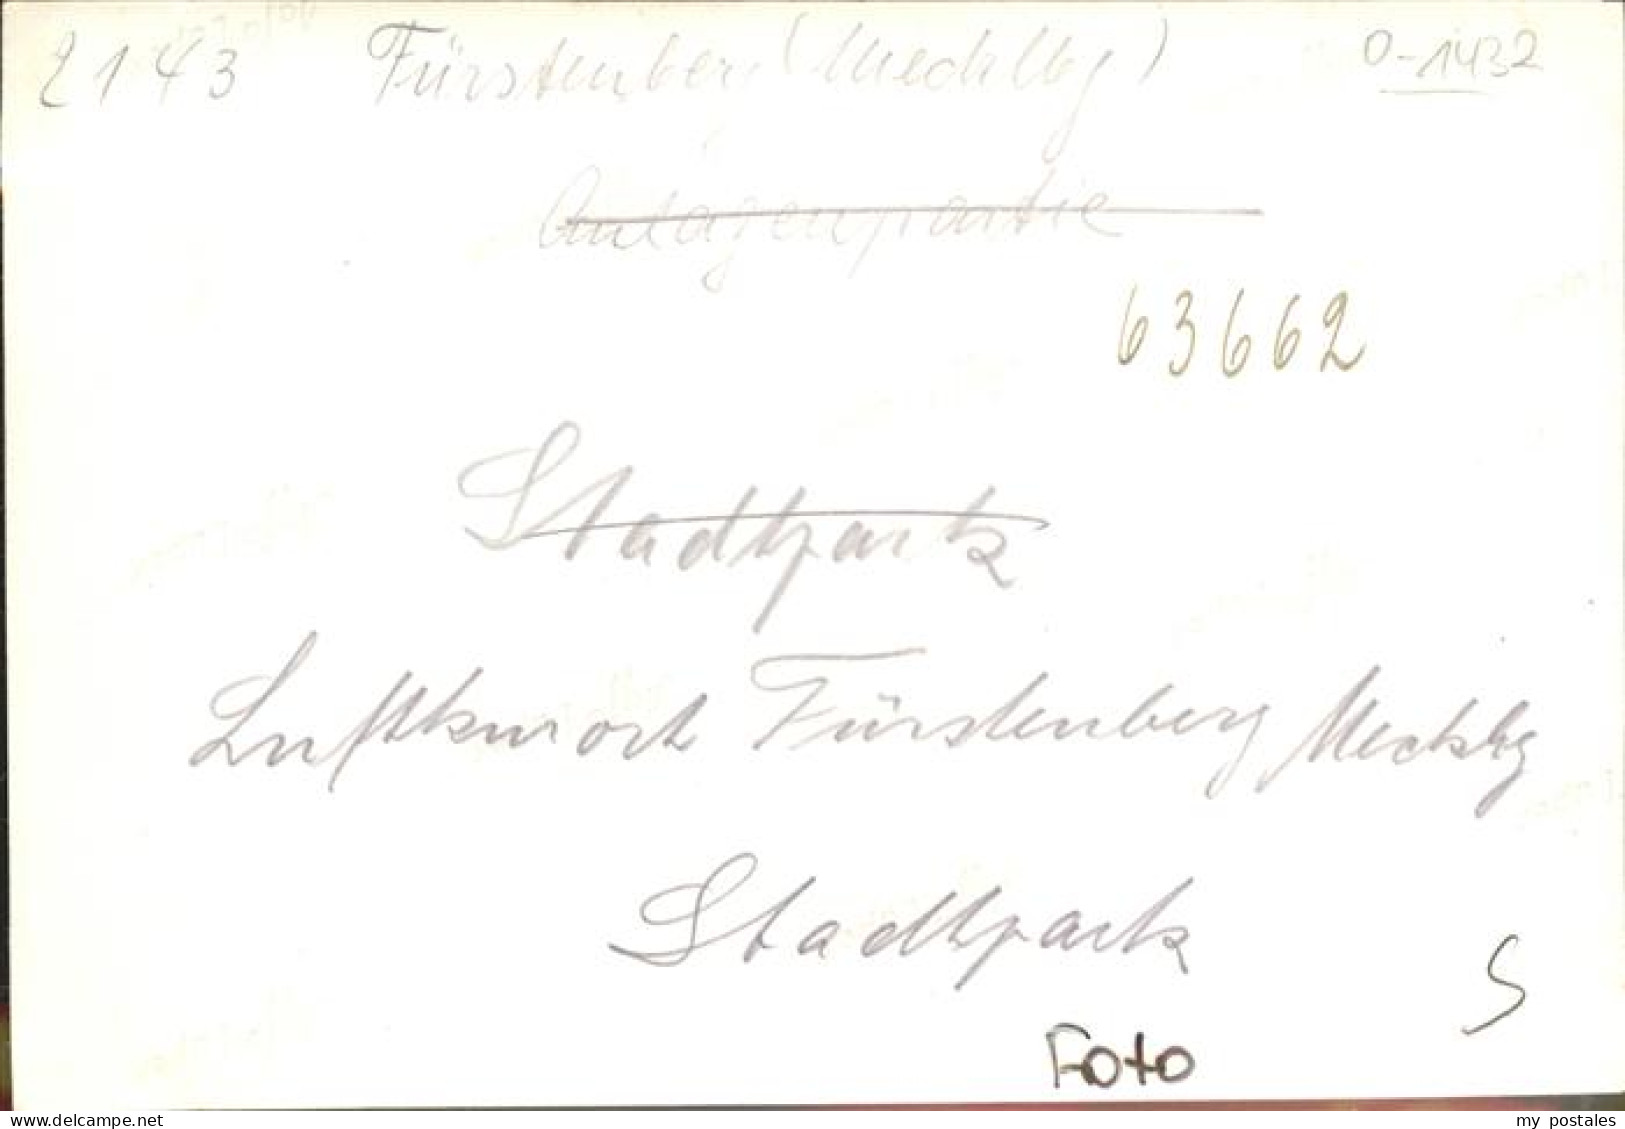 2143 Fürstenberg (Mecklbg) O-1432
Anlagenpartie
63662
Stadtpark
Luftkurort Fürstenberg Mecklbg
Stadtpark
S
Foto
www.delcampe.net my_postales